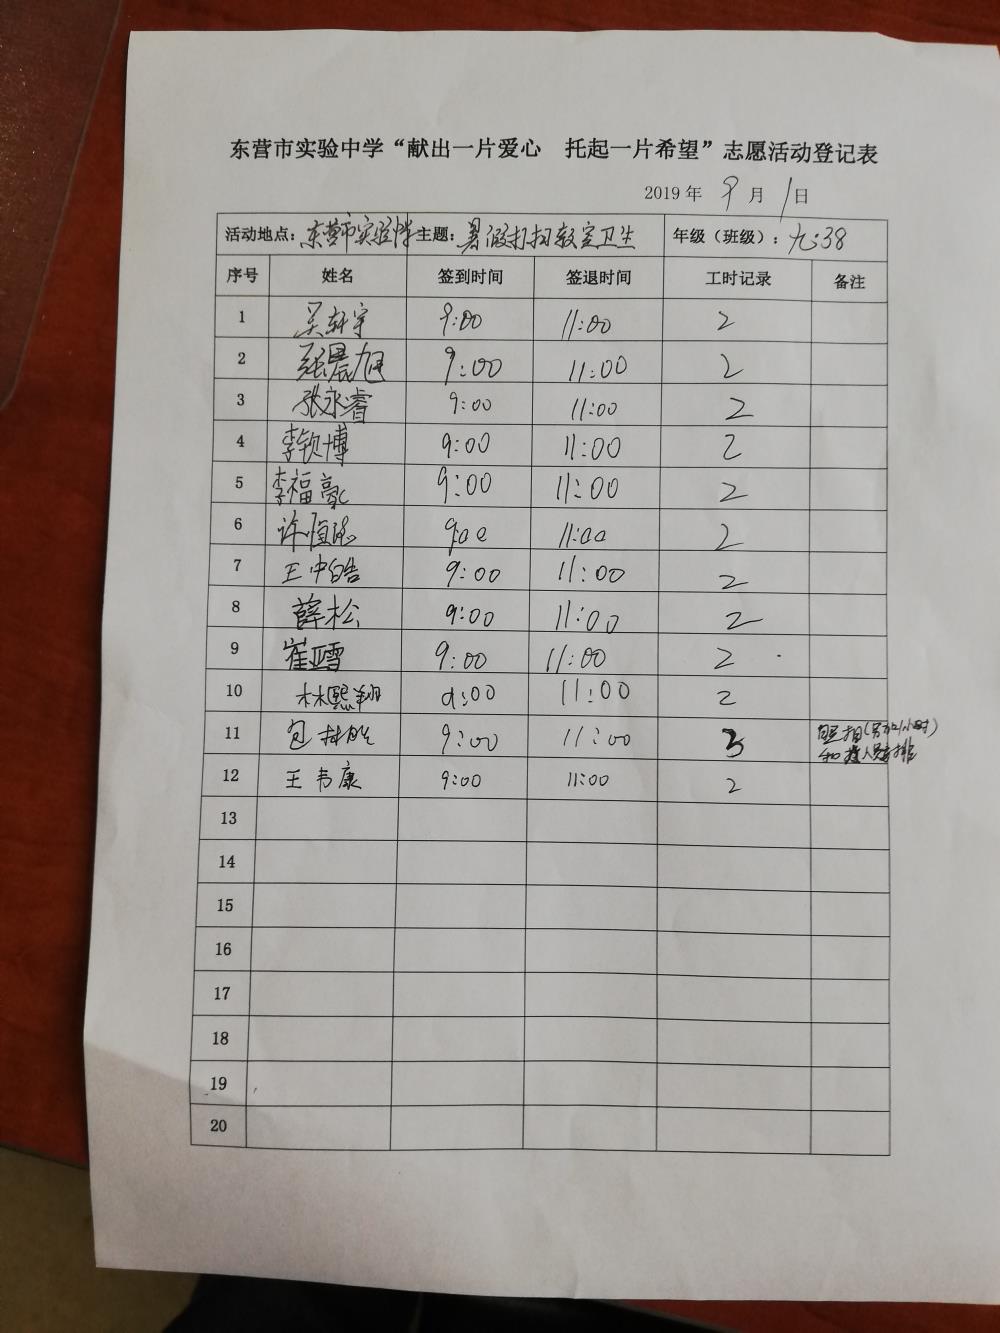 东营市实验中学“献出一片爱心 托起一片希望”志愿活动登记表
2019 年 9 月 1 日
活动地点：东营市实验中学 主题：暑假打扫教室卫生 年级（班级）：九.38
序号 姓名 签到时间 签退时间 工时记录 备注
1 吴轩宇 9:00 11:00 2
2 张晨旭 9:00 11:00 2
3 张永睿 9:00 11:00 2
4 李钦博 9:00 11:00 2
5 李福豪 9:00 11:00 2
6 许恒 9:00 11:00 2
7 王中皓 9:00 11:00 2
8 薛松 9:00 11:00 2
9 崔亚雪 9:00 11:00 2
10 林熙翔 9:00 11:00 2
11 包 9:00 11:00 3 照相(另加1小时)
和 人员安排
12 王韦康 9:00 11:00 2
13
14
15
16
17
18
19
20